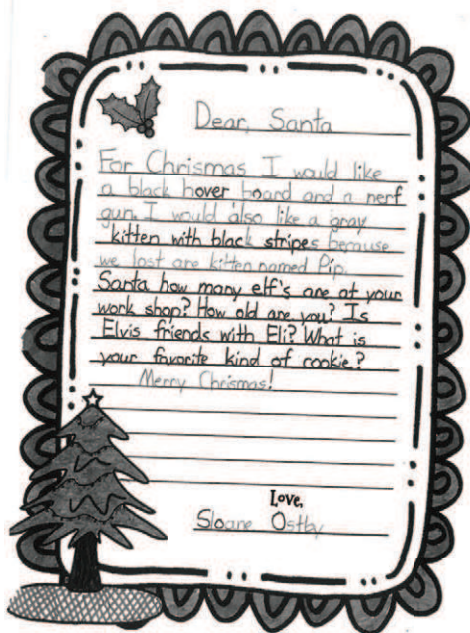 Dear, Santa
For Chrismas I would like
a black hover board and a nerf
gun. I would also like a gray
kitten with black stripes because
we lost are kitten named Pip.
Santa how many elf's are at your
work shop? How old are you? Is
Elvis friends with Eli? What is
your favorite kind of cookie?
Merry Chrismas!
Love,
Sloane Ostby